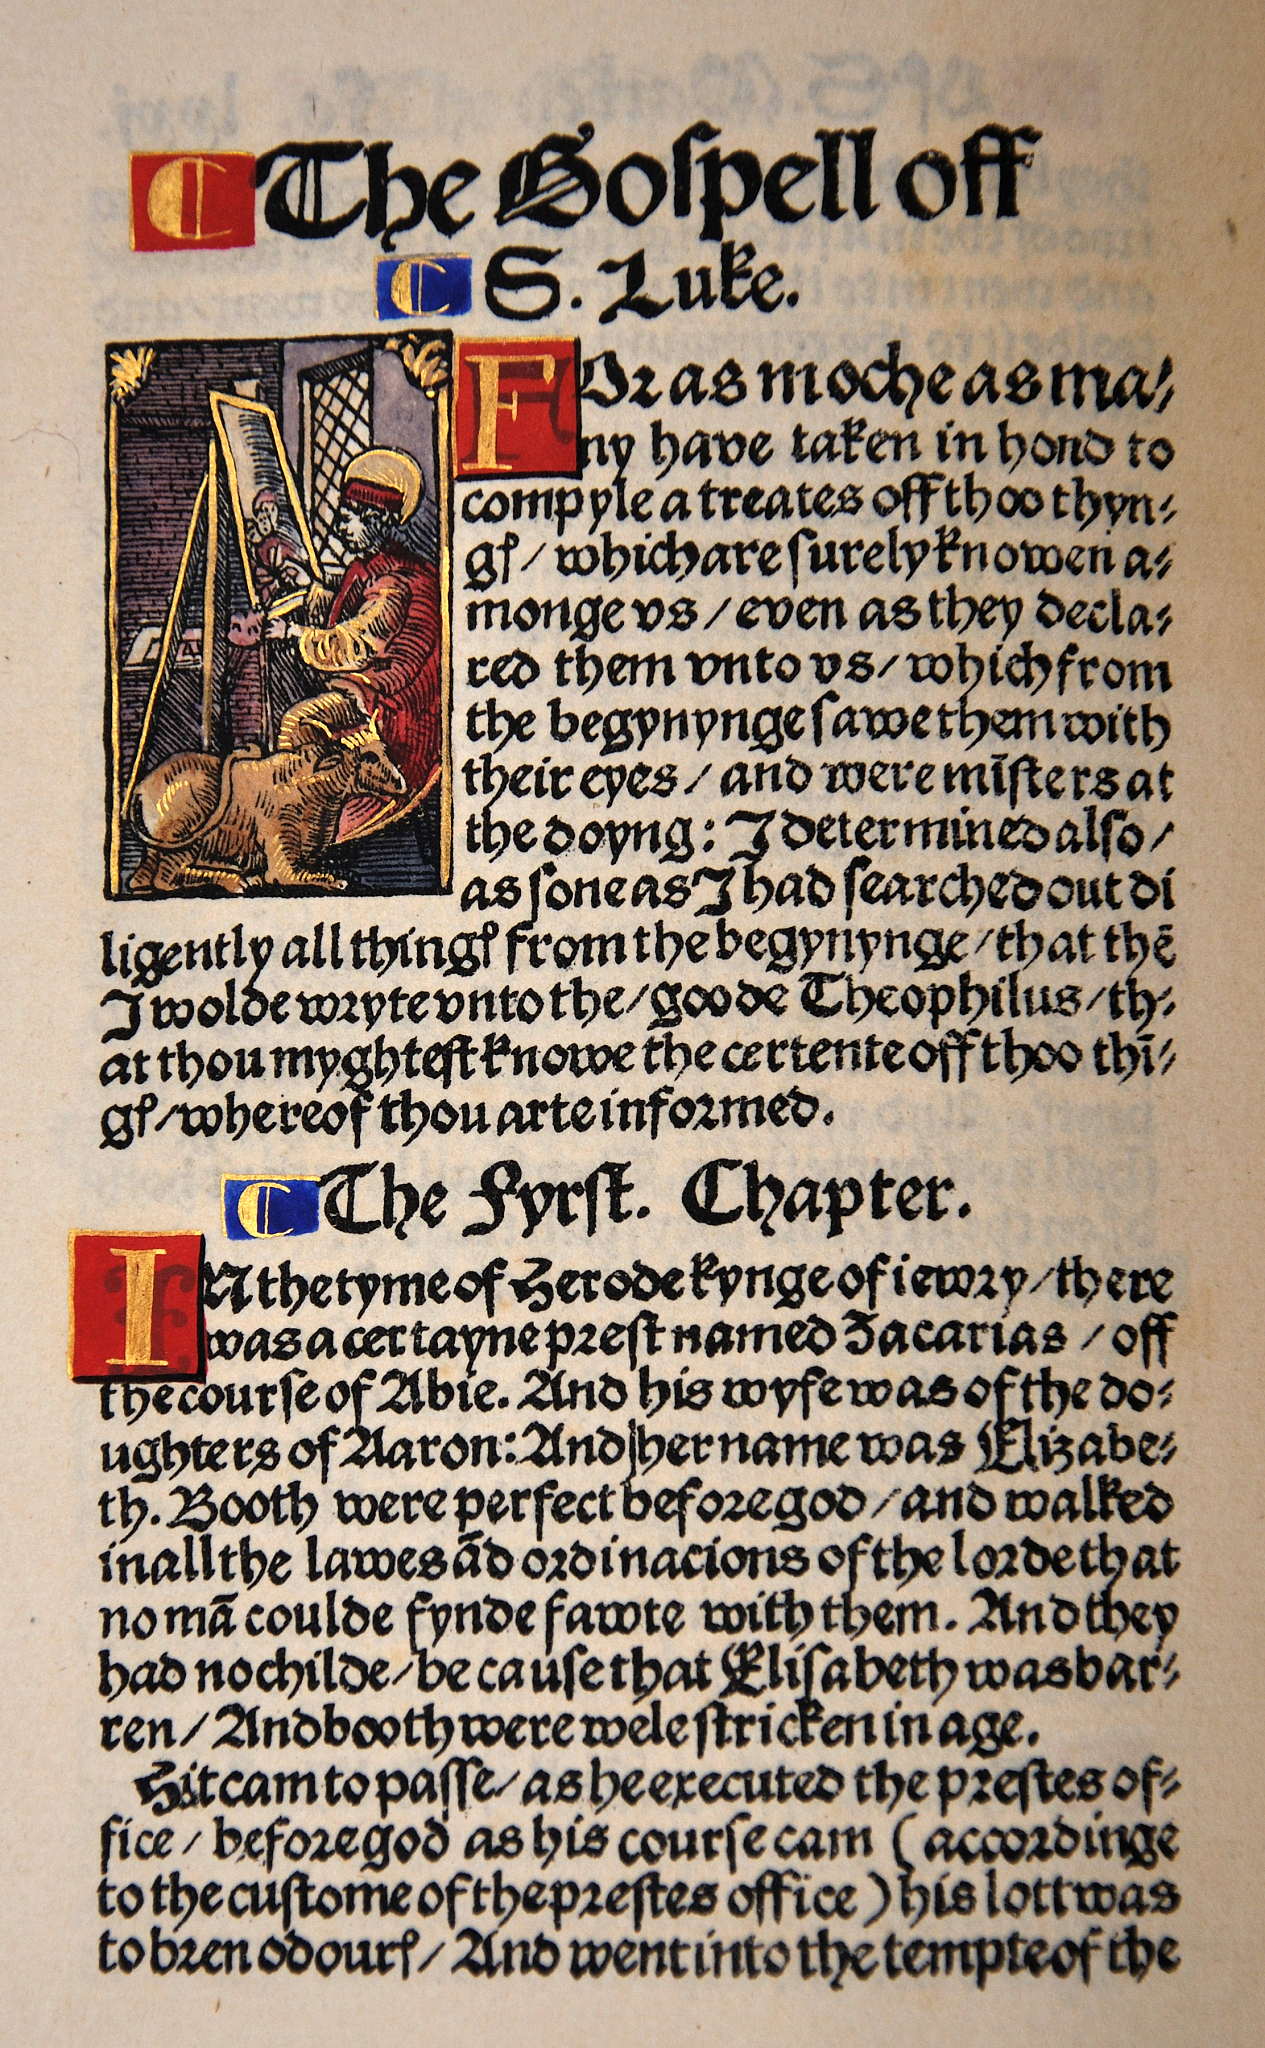 The Gospell off
S. Luke.
FOr as moche as ma/
ny have taken in hond to
compyle a treates off thoo thyn⸗
gꝭ / which are surely knowen a⸗
monge vs / even as they decla⸗
red them vnto vs / which from
the begynynge sawe them with
their eyes / and were mīsters at
the doyng: I determined also /
as sone as I had searched out di
ligently all thingꝭ from the begynynge / that thē
I wolde wryte vnto the / goode Theophilus / th⸗
at thou myghtest knowe the certente off thoo thī⸗
gꝭ / whereof thou arte informed.
The Fyrst. Chapter.
IN the tyme of Herode kynge of iewry / there
was a certayne prest named Zacarias / off
the course of Abie. And his wyfe was of the do⸗
ughters of Aaron: And her name was Elizabe⸗
th. Booth were perfect before god / and walked
in all the lawes ād ordinacions of the lorde that
no mā coulde fynde fawte with them. And they
had no childe / because that Elisabeth was bar⸗
ren / And booth were wele stricken in age.
Hit cam to passe / as he executed the prestes of⸗
fice / before god as his course cam ( accordinge
to the custome of the prestes office ) his lott was
to bren odourꝭ / And went into the temple of the